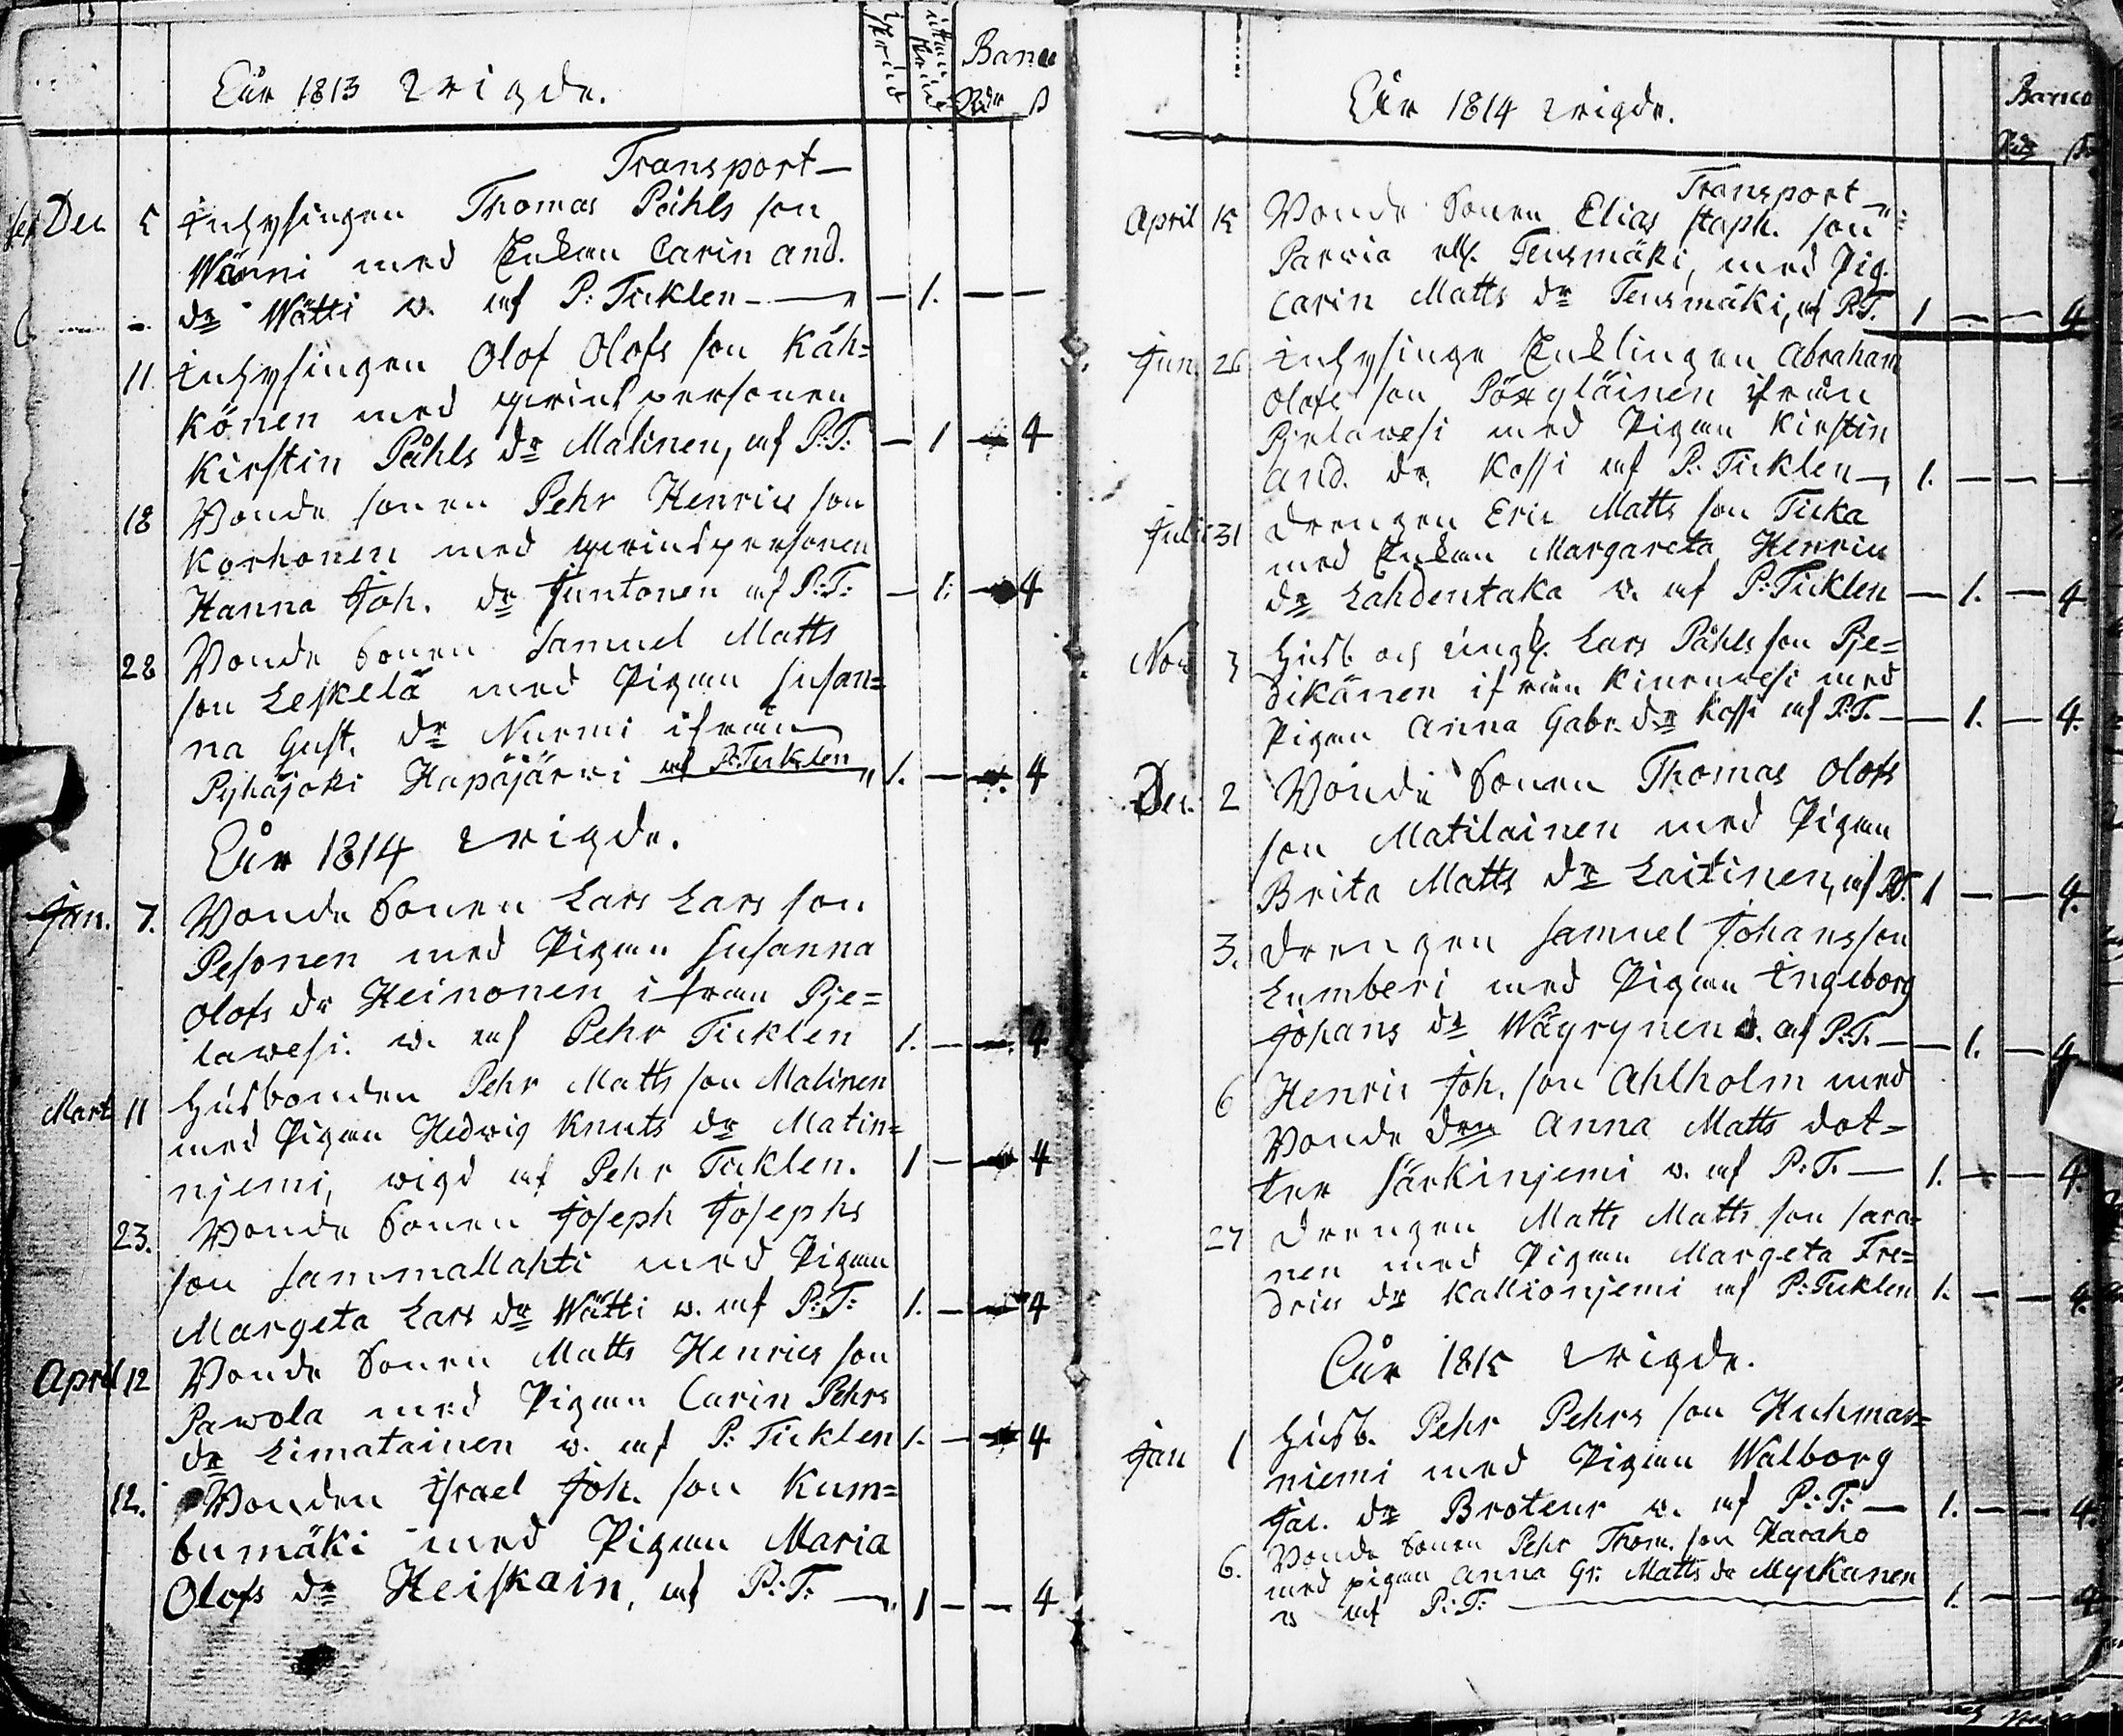 Krud
utan Krud
Banco
Åår 1813 wigde.
Rdr ß
Transport —
Dec 5 Inhysingen Thomas Påhls son
Wänni med Enkan Carin And.
dr Wätti w. af P: Ticklen — 1. — —
11 Inhysingen Olof Olofs son Käh=
könen med qvinspersonen
Kirstin Påhls dr Malinen, af P:T: — 1 — 4
18 Bonde sonen Pehr Henrics son
Korhonen med qvinspersonen
Hanna Joh. dr Juntonen af P:T: — 1: — 4
28 Bonde Sonen Samuel Matts
son Leskelä med Pigan Susan=
na Gust. dr Nurmi ifrån
Pyhäjoki Hapajärvi af P:Ticklen 1. — 4
Åår 1814 wigde.
Jan. 7. Bonde Sonen Lars Lars son
Pesonen med Pigan Susanna
Olofs dr Heinonen ifrån Pje=
lawesi. w. af Pehr Ticklen 1. — — 4
Mart 11 Husbonden Pehr Matts son Malinen
med Pigan Hedwig Knuts dr Matin=
njemi, wigd af Pehr Ticklen. 1 — 4
23. Bonde Sonen Joseph Josephs
son Sammallahti med Pigan
Margeta Lars dr Wätti w. af P:T: 1. — 4
April 12 Bonde Sonen Matts Henrics son
Pawola med Pigan Carin Pehrs
dr Limatainen w. af P: Ticklen 1. — 4
12. Bonden Israel Joh. son Kum=
bumäki med Pigan Maria
Olofs dr Heiskain, af P:T: — 1 — — 4
Åår 1814 wigde.
Banco
Transport —
April 15 Bonde Sonen Elias Staph. son
Parvia ell. Tensmäki, med Pig.
Carin Matts dr Tensmäki, af P:T. 1 — — 4
Jun 26 Inhysinge Enklingen Abraham
Olofs son Pörgläinen ifrån
Pjelawesi med Pigan Kirstin
And. dr Kossi af P. Ticklen — 1. — — —
Julii 31 Drengen Eric Matts son Ticka
med Enkan Margareta Henrics
dr Lahdentaka w. af P:Ticklen — 1. — 4
Nov 3 Husb. och ungk. Lars Påhls son Pje=
dikänen ifrån Kinruwesi med
Pigan Anna Gabr. dr Kossi af P:T. — 1. — 4.
Dec. 2 Bonde Sonen Thomas Olofs
son Matilainen med Pigan
Brita Matts dr Laitinen, af P:T. 1 — — 4.
3. Drengen Samuel Johans son
Lumberi med Pigan Ingeborg
Johans dr Wäyrynen w. af P:T. — 1. — 4
6 Henric Joh. son Ahlholm med
Bonde dren Anna Matts dot=
ter Särkinjemi w. af P:T. — 1. — — 4.
27 Drengen Matts Matts son Sara=
nen med Pigan Margeta Fre=
dric dr Kallionjemi af P:Ticklen 1. — — 4.
Åår 1815 wigde.
Jan 1 Husb. Pehr Pehrs son Kuhmas=
niemi med Pigan Walborg
Jac. dr Broteur w. af P:T: — 1. — — 4.
6. Bonde Sonen Pehr Thom. son Karaho
med pigan Anna Gr: Matts dr Myikänen
w af P:T: — 1. — — 4